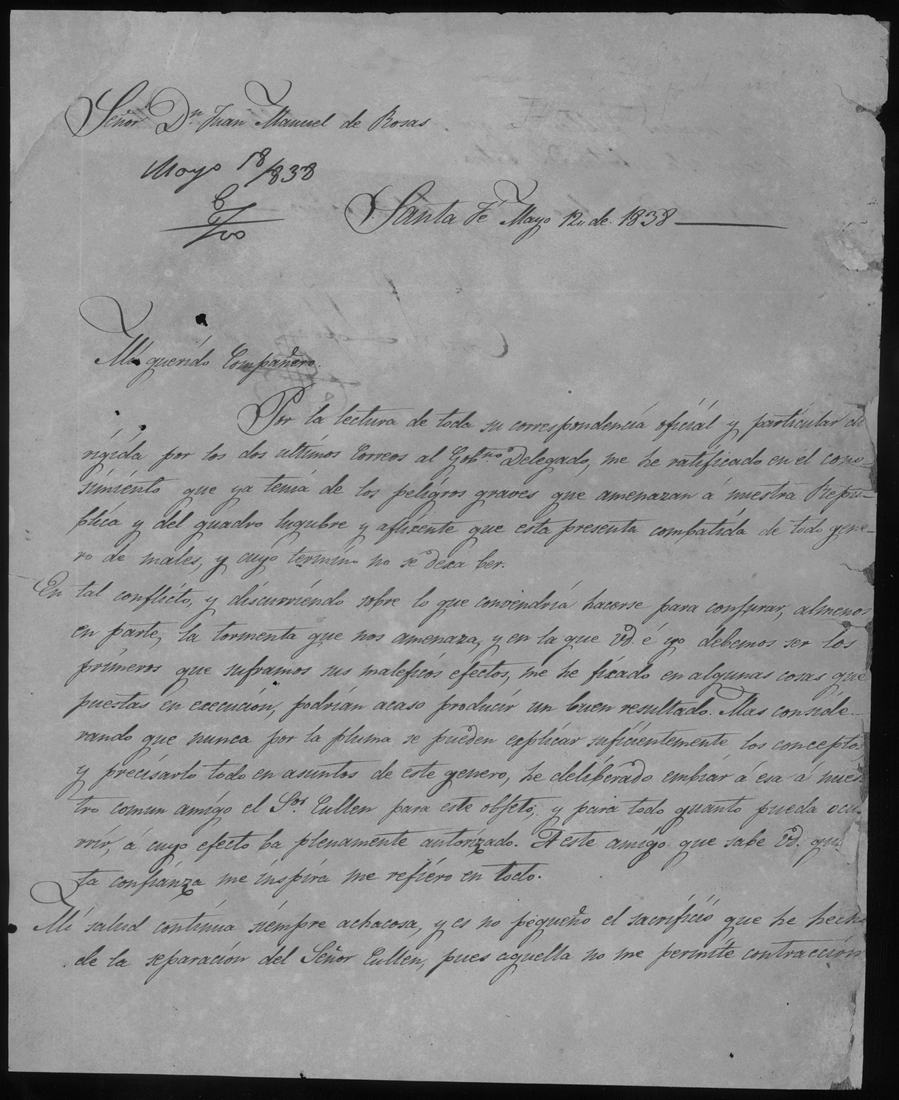 Señor Dn. Juan Manuel de Rosas
Mayo 18/838
Santa Fé Mayo 12,, de 1838
Mi querido Compañero.
Por la lectura de toda su correspondencia oficial y particular di
rigida por los dos ultimos Correos al Gobno. Delegado, me he ratificado en el cono-
simiento que ya tenia de los peligros graves que amenazan á nuestra Repu-
blica y del quadro lugubre y aflixente que esta presenta combatida de todo gene-
ro de males, y cuyo termino no se dexa ber.
En tal conflicto, y discurriendo sobre lo que convindria hacerse para conjurar, almenos
en parte, la tormenta que nos amenaza, y en la que Vd. é yo debemos ser los
primeros que suframos sus maleficos efectos, me he fixado en algunas cosas que
puestas en execucion, podrian acaso producir un buen resultado. Mas conside-
rando que nunca por la pluma se pueden explicar suficientemente los conceptos
y precisarlo todo en asuntos de este genero, he deliberado embiar á esa á nues
tro comun amigo el Sor. Cullen para este objeto, y para todo quanto pueda ocu-
rrir, á cuyo efecto ba plenamente autorizado. A este amigo que sabe Vd. qu
ta confianza me inspira me refiero en todo.
Mi salud continua siempre achacosa, y es no pequeño el sacrificio que he hecho
de la separacion del Señor Cullen, pues aquella no me permite contraccion